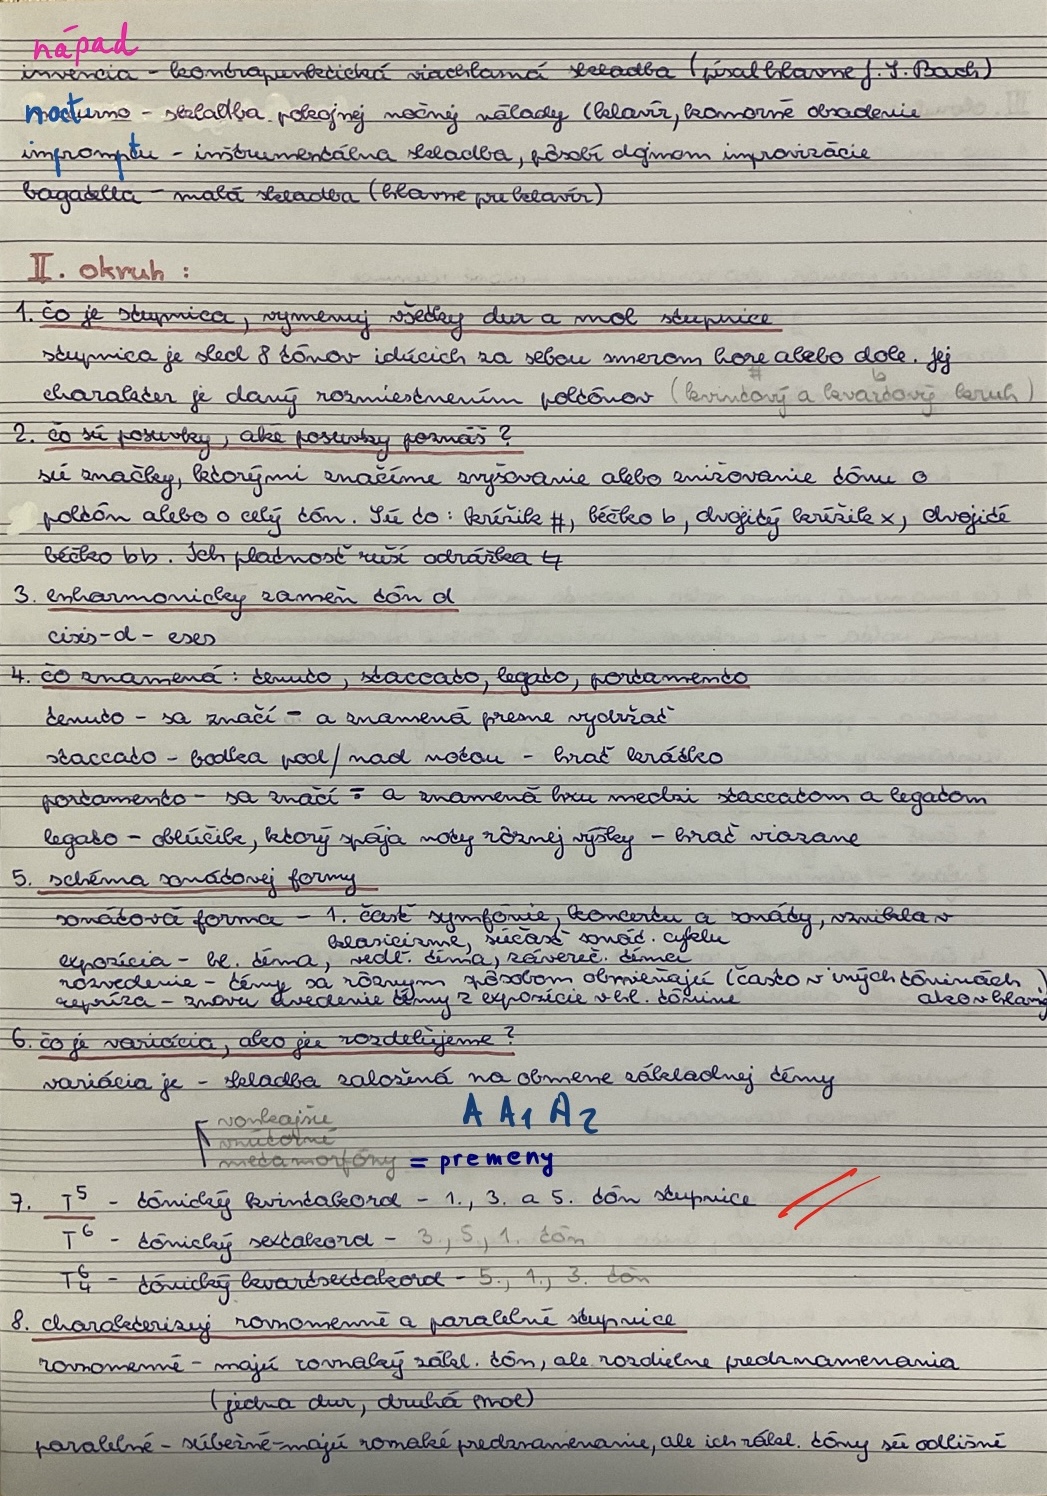 nápad
invencia - kontrapunktická viachlasná skladba (písal hlavne J. S. Bach)
nocturno - skladba pokojnej nočnej nálady (klavír, komorné obsadenie
impromptu - inštrumentálna skladba, pôsobí dojmom improvizácie
bagatella - malá skladba (hlavne pre klavír)
II. okruh :
1. čo je stupnica, vymenuj všetky dur a mol stupnice
stupnica je sled 8 tónov idúcich za sebou smerom hore alebo dole. Jej
# b
charakter je daný rozmiestnením poltónov (kvintový a kvartový kruh)
2. čo sú posuvky, aké posuvky poznáš ?
sú značky, ktorými značíme zvyšovanie alebo znižovanie tónu o
poltón alebo o celý tón. Sú to : krížik #, béčko b, dvojitý krížik x, dvojité
béčko bb. Ich platnosť ruší odrážka ♮
3. enharmonicky zameň tón d
cisis - d - eses
4. čo znamená : tenuto, staccato, legato, portamento
tenuto - sa značí - a znamená presne vydržať
staccato - bodka pod/nad notou - hrať krátko
portamento - sa značí - a znamená hru medzi staccatom a legatom
legato - oblúčik, ktorý spája noty rôznej výšky - hrať viazane
5. schéma sonátovej formy
sonátová forma - 1. časť symfónie, koncertu a sonáty, vznikla v
klasicizme, súčasť sonát. cyklu
expozícia - hl. téma, vedľ. téma, závereč. téma
rozvedenie - témy sa rôznym spôsobom obmieňajú (často v iných tóninách
repríza - znovu uvedenie témy z expozície v hl. tónine ako v hlavnej)
6. čo je variácia, ako ju rozdeľujeme ?
variácia je - skladba založená na obmene základnej témy
A A1 A2
vonkajšie
vnútorné
metamorfózny = premeny
7. T5 - tónický kvintakord - 1., 3. a 5. tón stupnice
T6 - tónický sextakord - 3., 5., 1. tón
T64 - tónický kvartsextakord - 5., 1., 3. tón
8. charakterizuj rovnomenné a paralelné stupnice
rovnomenné - majú rovnaký zákl. tón, ale rozdielne predznamenania
(jedna dur, druhá mol)
paralelné - súbežné - majú rovnaké predznamenanie, ale ich zákl. tóny sú odlišné